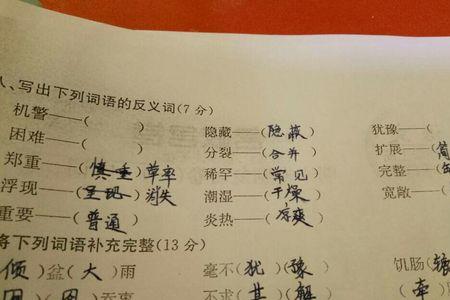 、写出下列词语的反义词(7分)
机警——( ) 隐藏——(隐蔽) 犹豫——(
困难——( ) 分裂——(合并) 扩展——(
郑重——(慎重 草率 稀罕——(常见) 完整——(
浮现——(呈现 消失 潮湿——(干燥) 宽敞——(
重要——(普通) 炎热——(凉爽)
将下列词语补充完整(13分)
倾)盆(大)雨 毫不(犹)(豫) 饥肠(辘
)吞 不求(其